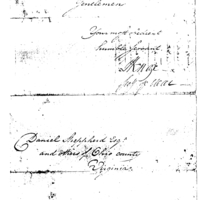 Gentlemen
Your most obedient
humble servant
HKnox
Secy of War
Daniel Shepherd Esqr
and others of Ohio county
Virginia